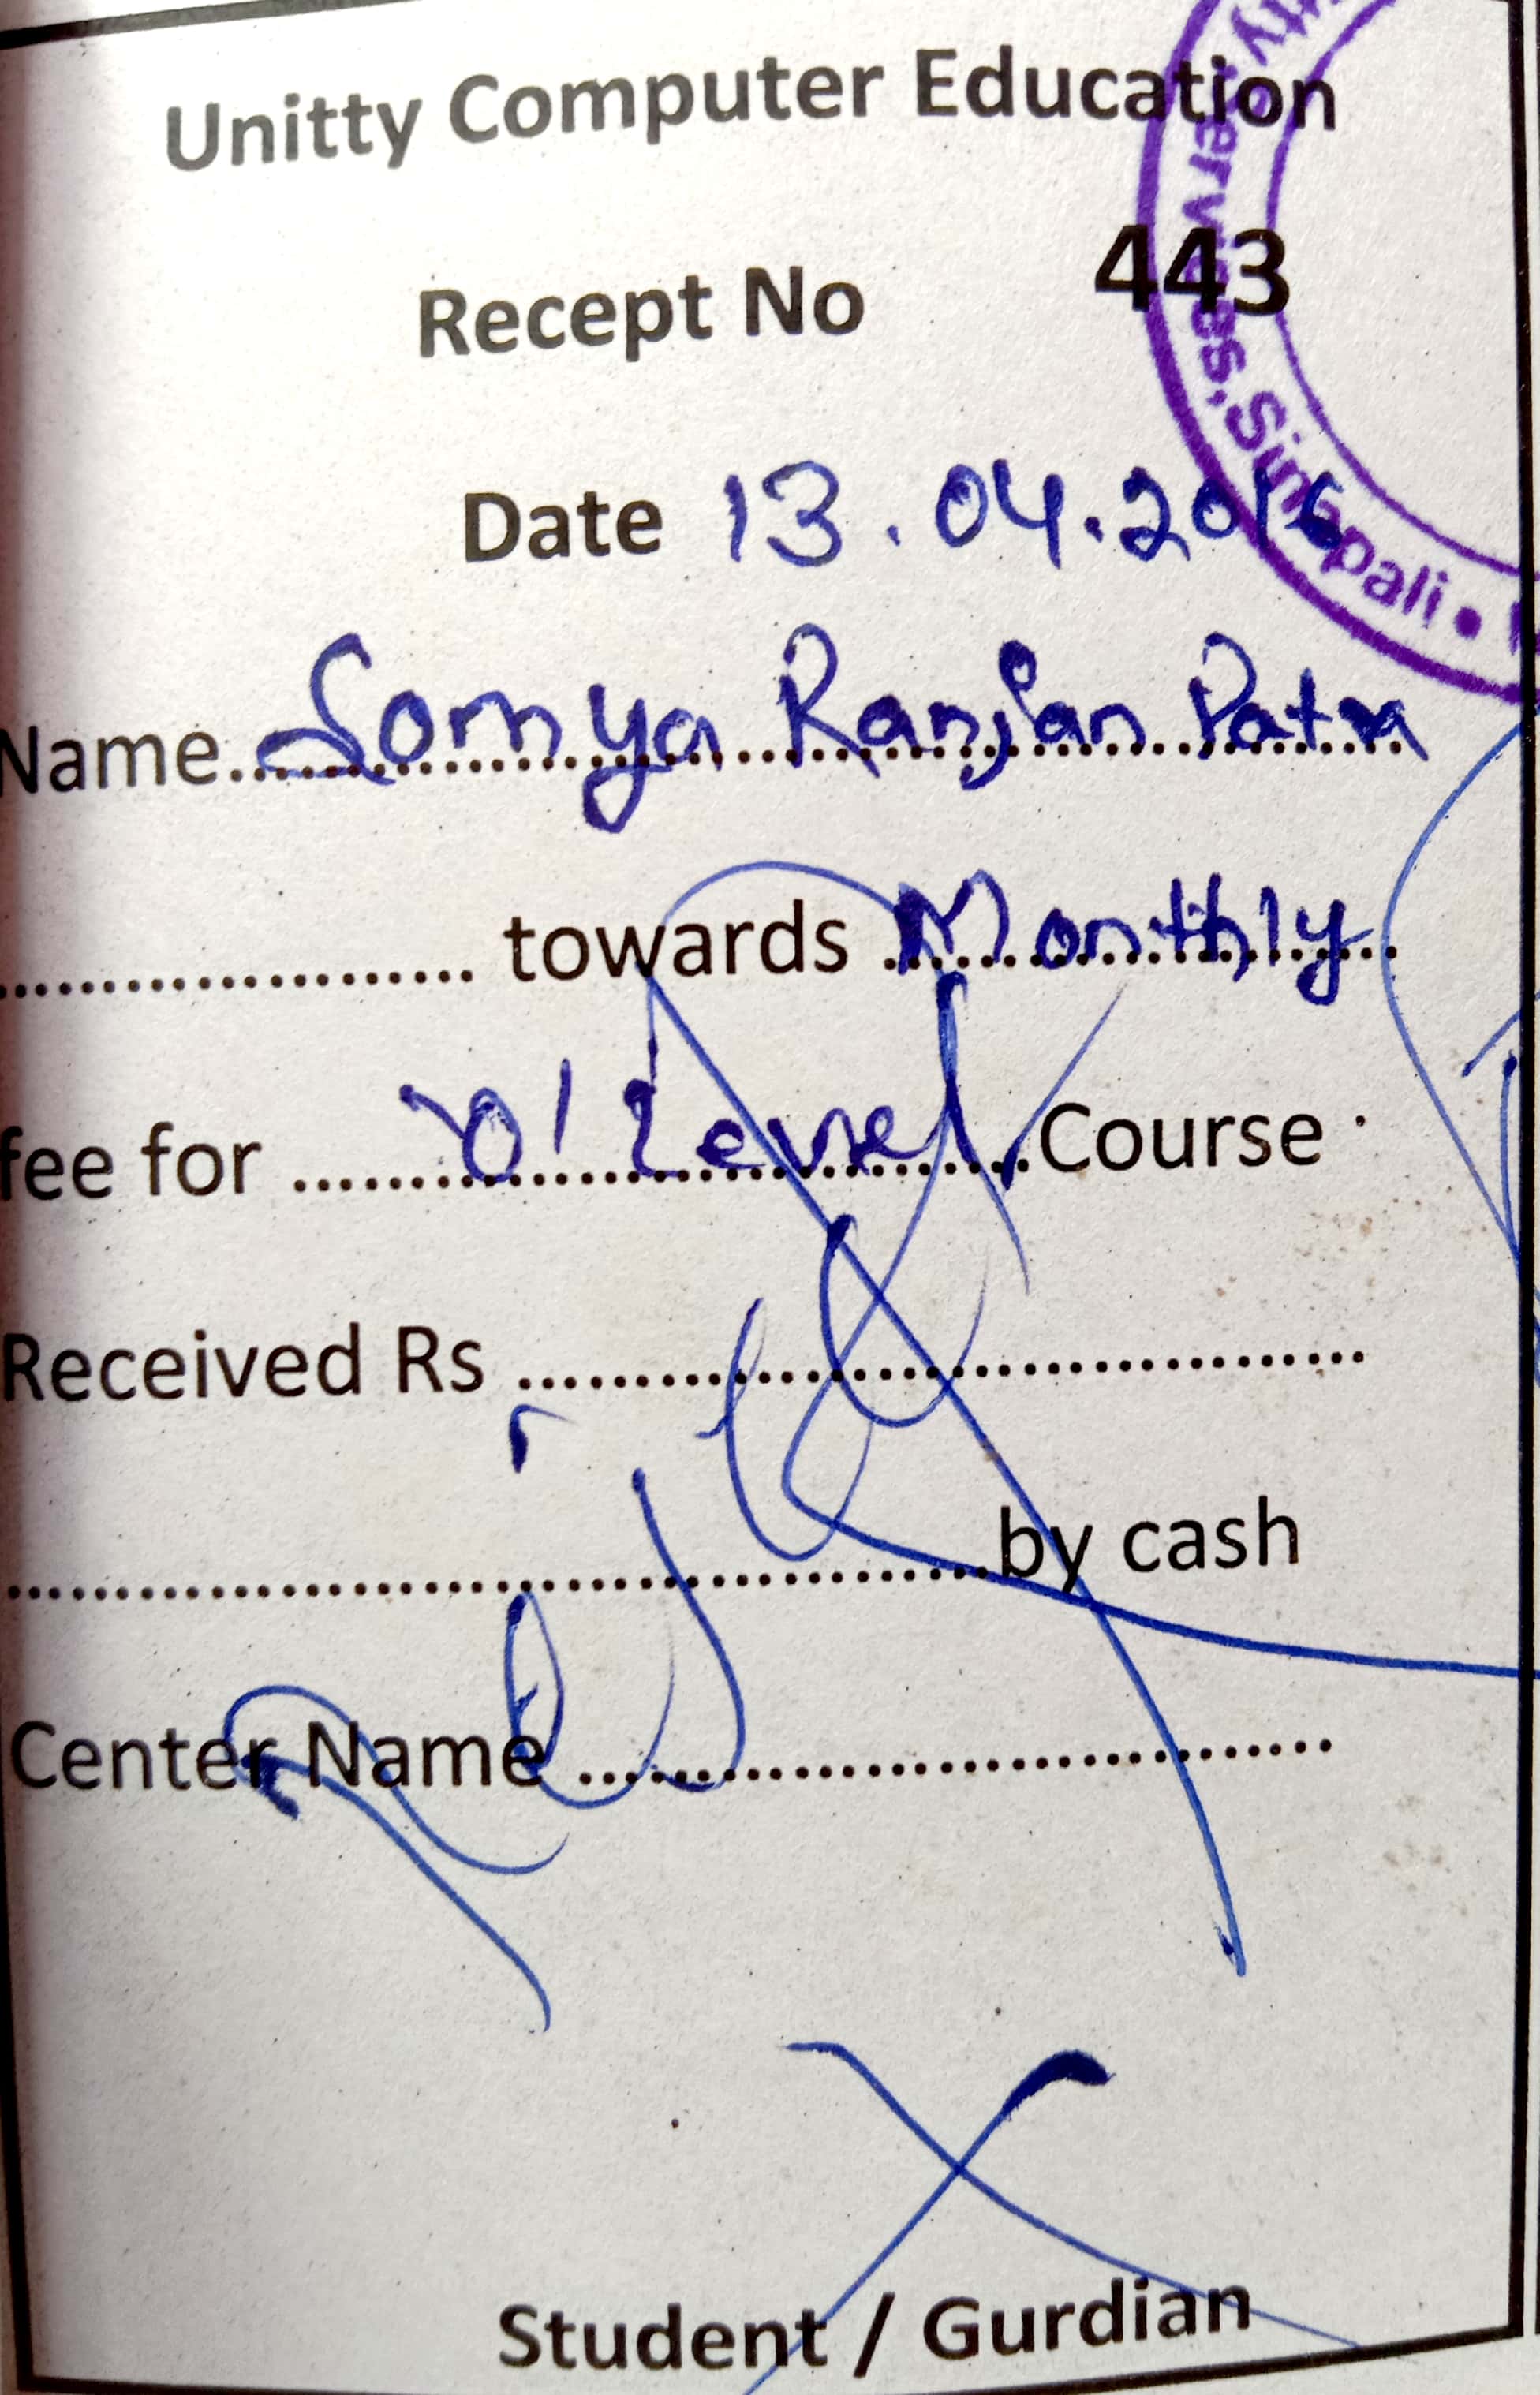 Unitty Computer Education
Recept No 443
Date 13.04.2016
Name Somya Ranjan Patra
towards Monthly
fee for 'O' Level Course
Received Rs
by cash
Center Name
Student / Gurdian
tty Services, Sinapali •